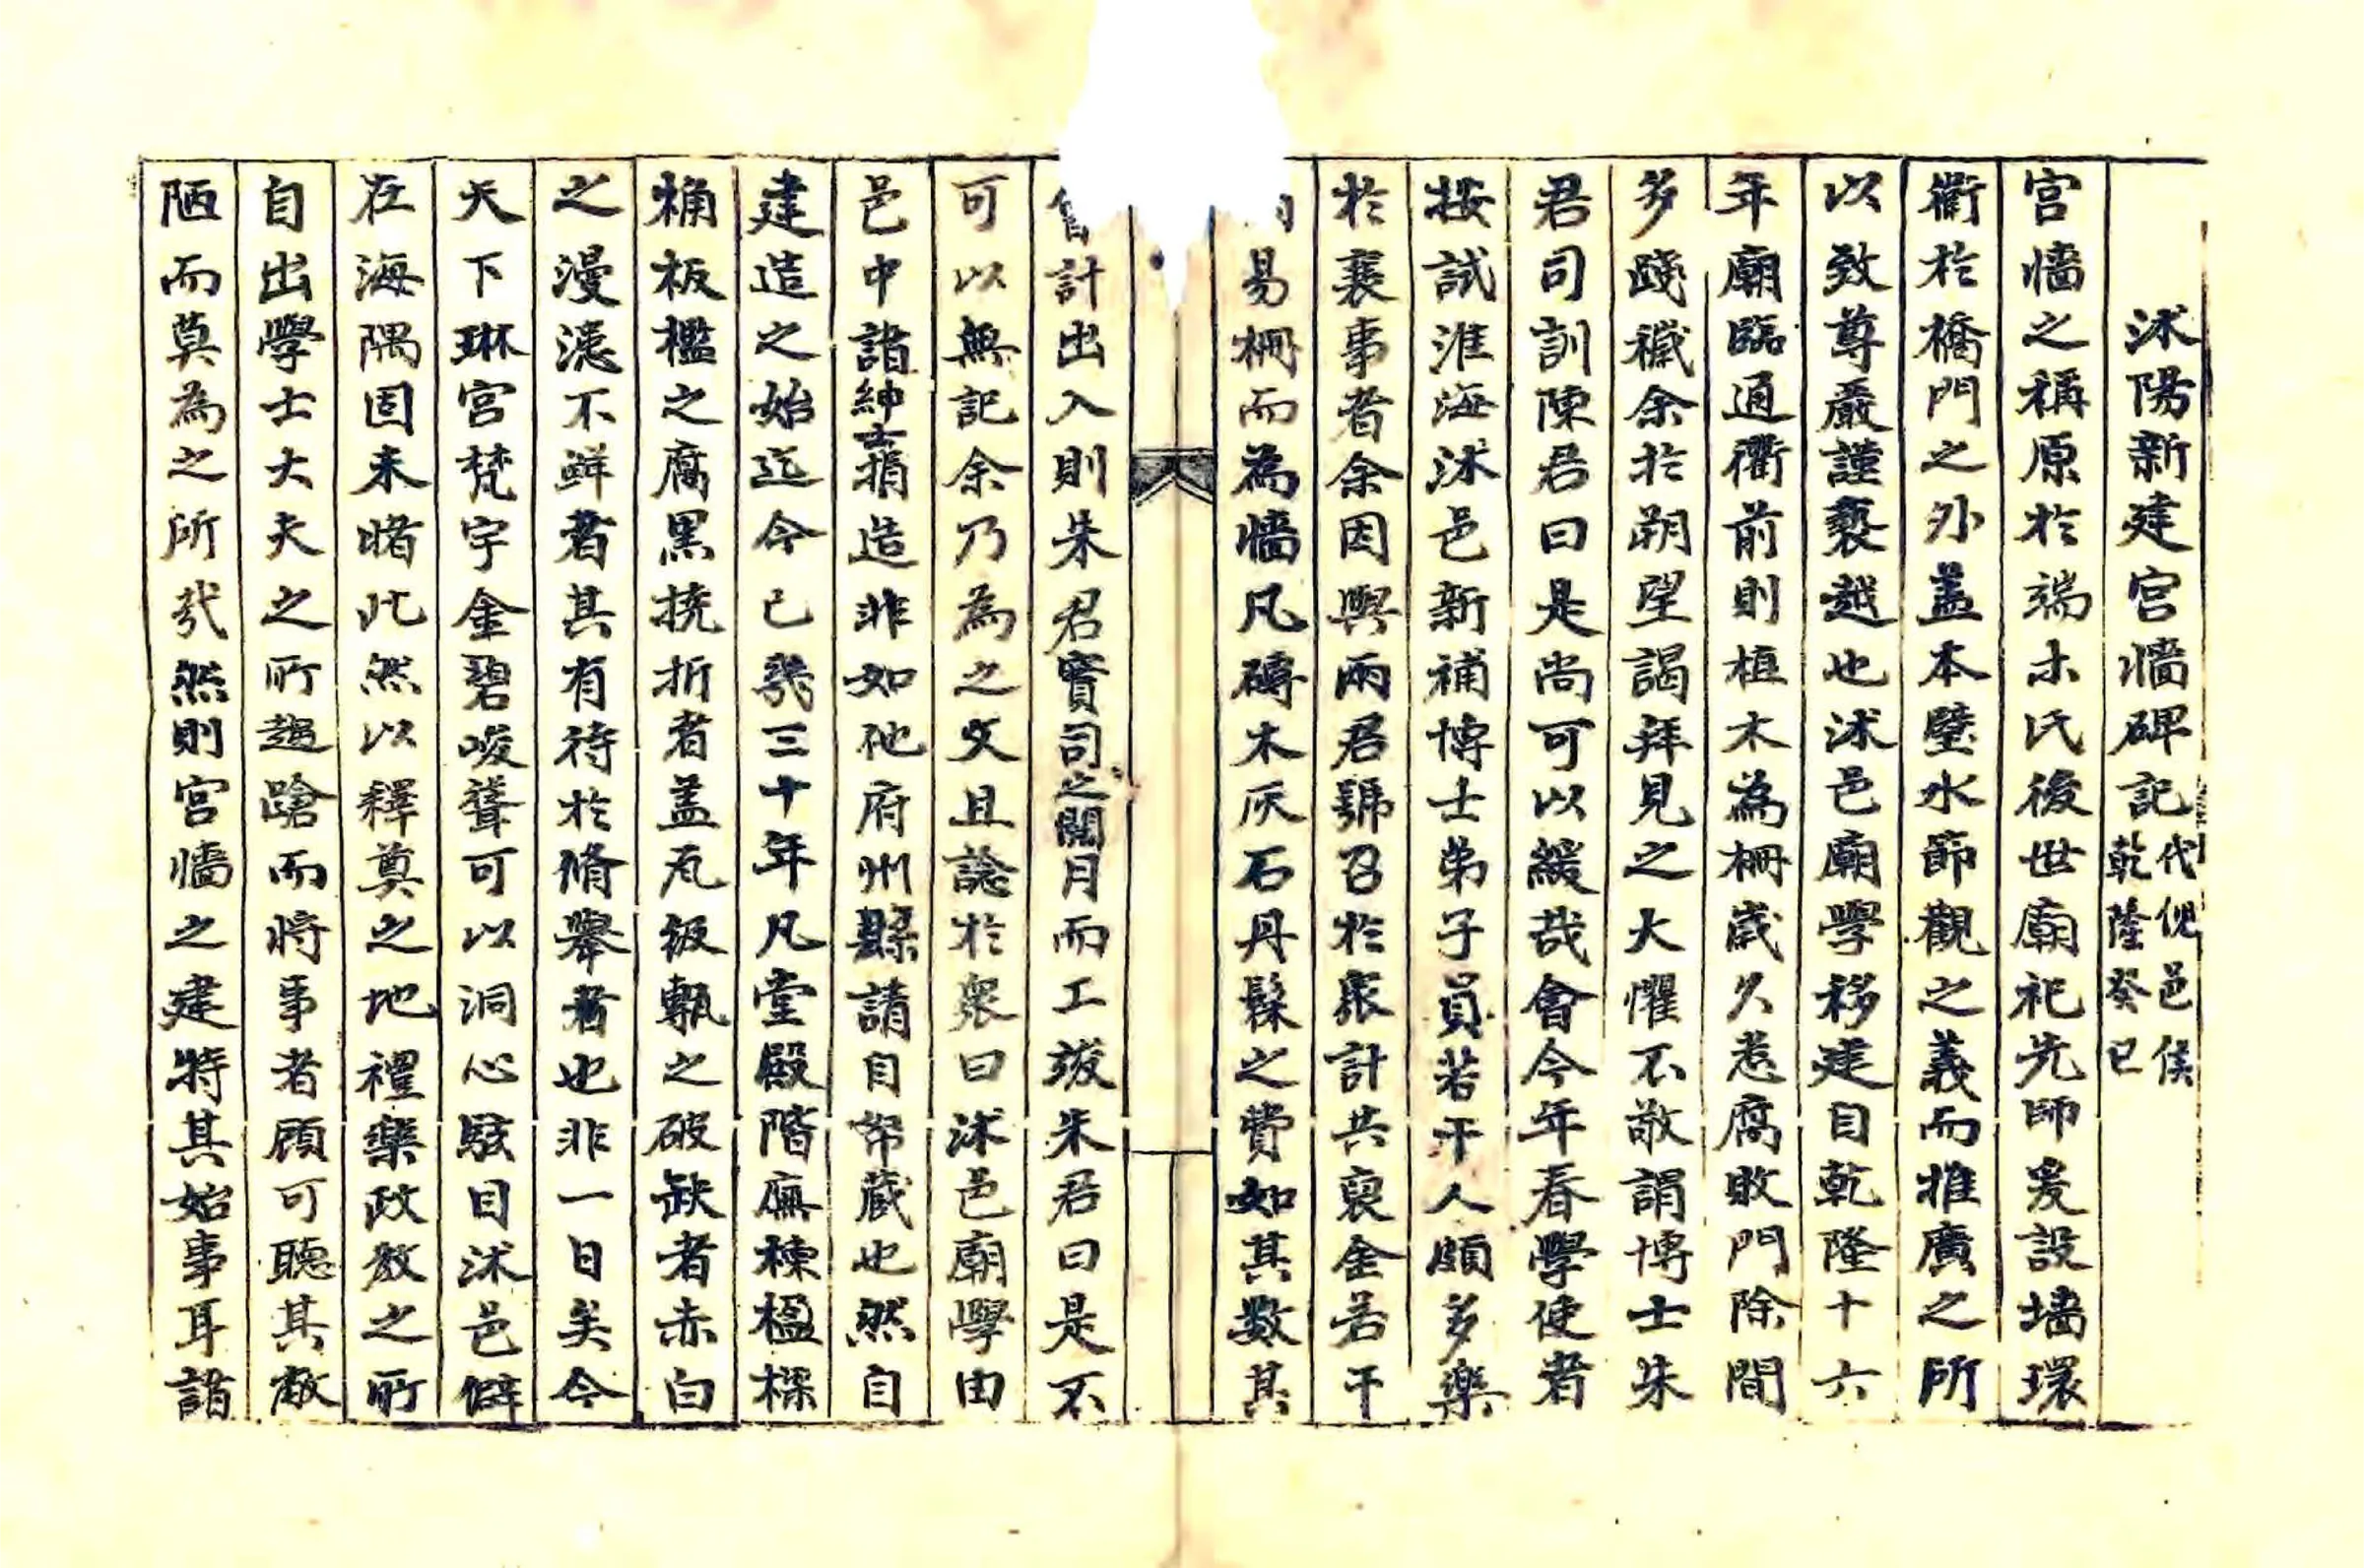 沭陽新建宮牆碑記代倪邑侯乾隆癸巳
宮牆之稱原於端木氏後世廟祀先師爰設墻環
衢於橋門之外盖本璧水節觀之義而推廣之所
以致尊嚴謹褻越也沭邑廟學移建自乾隆十六
年廟臨通衢前則植木為柵歲久惹腐敗門除間
多踐穢余於朔望謁拜見之大懼不敬謂博士朱
君司訓陳君曰是尚可以緩哉會今年春學使者
按試淮海沭邑新補博士弟子員若干人頗多樂
於襄事者余因與兩君號召於衆計共裒金若干
易柵而為牆凡磚木灰石丹髹之費如其數其
計出入則朱君實司之閱月而工竣朱君曰是不
可以無記余乃為之文且諗於衆曰沭邑廟學由
邑中諸紳士捐造非如他府州縣請自帑藏也然自
建造之始迄今已幾三十年凡堂殿階廡棟楹榱
桷板檻之腐黑撓折者盖瓦級甎之破缺者赤白
之漫漶不鮮者其有待於脩舉者也非一日矣今
天下琳宮梵宇金碧峻聳可以洞心駭目沭邑僻
在海隅固未睹此然以釋奠之地禮樂政教之所
自出學士大夫之所趨蹌而將事者顧可聽其敝
陋而莫為之所哉然則宮牆之建特其始事耳諸